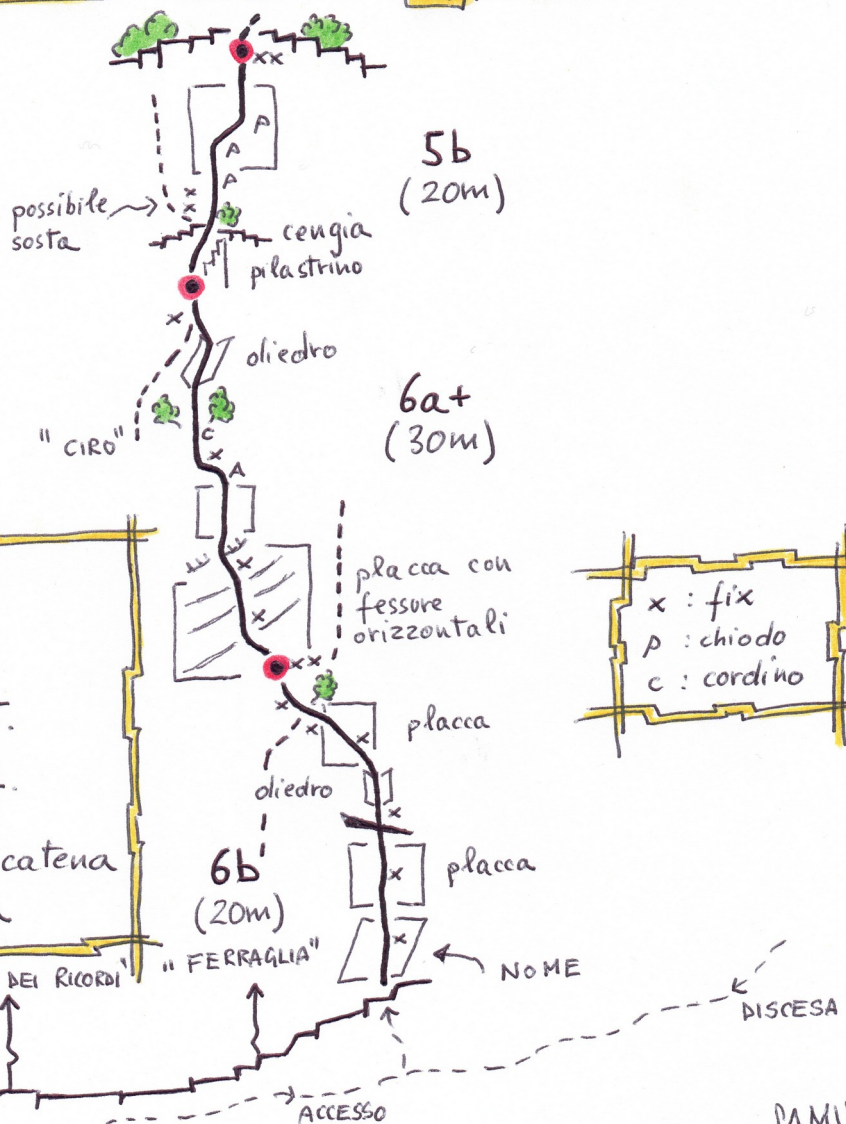 xx
P
A
P
5b
(20m)
x
x
possibile
sosta
cengia
pilastrino
x
diedro
6a+
(30m)
"CIRO"
c
x
A
x
placca con
fessure
orizzontali
x
xx
x : fix
P : chiodo
c : cordino
x
x
x
placca
diedro
x
catena
6b
(20m)
x
placca
x
DEI RICORDI"
"FERRAGLIA"
NOME
DISCESA
ACCESSO